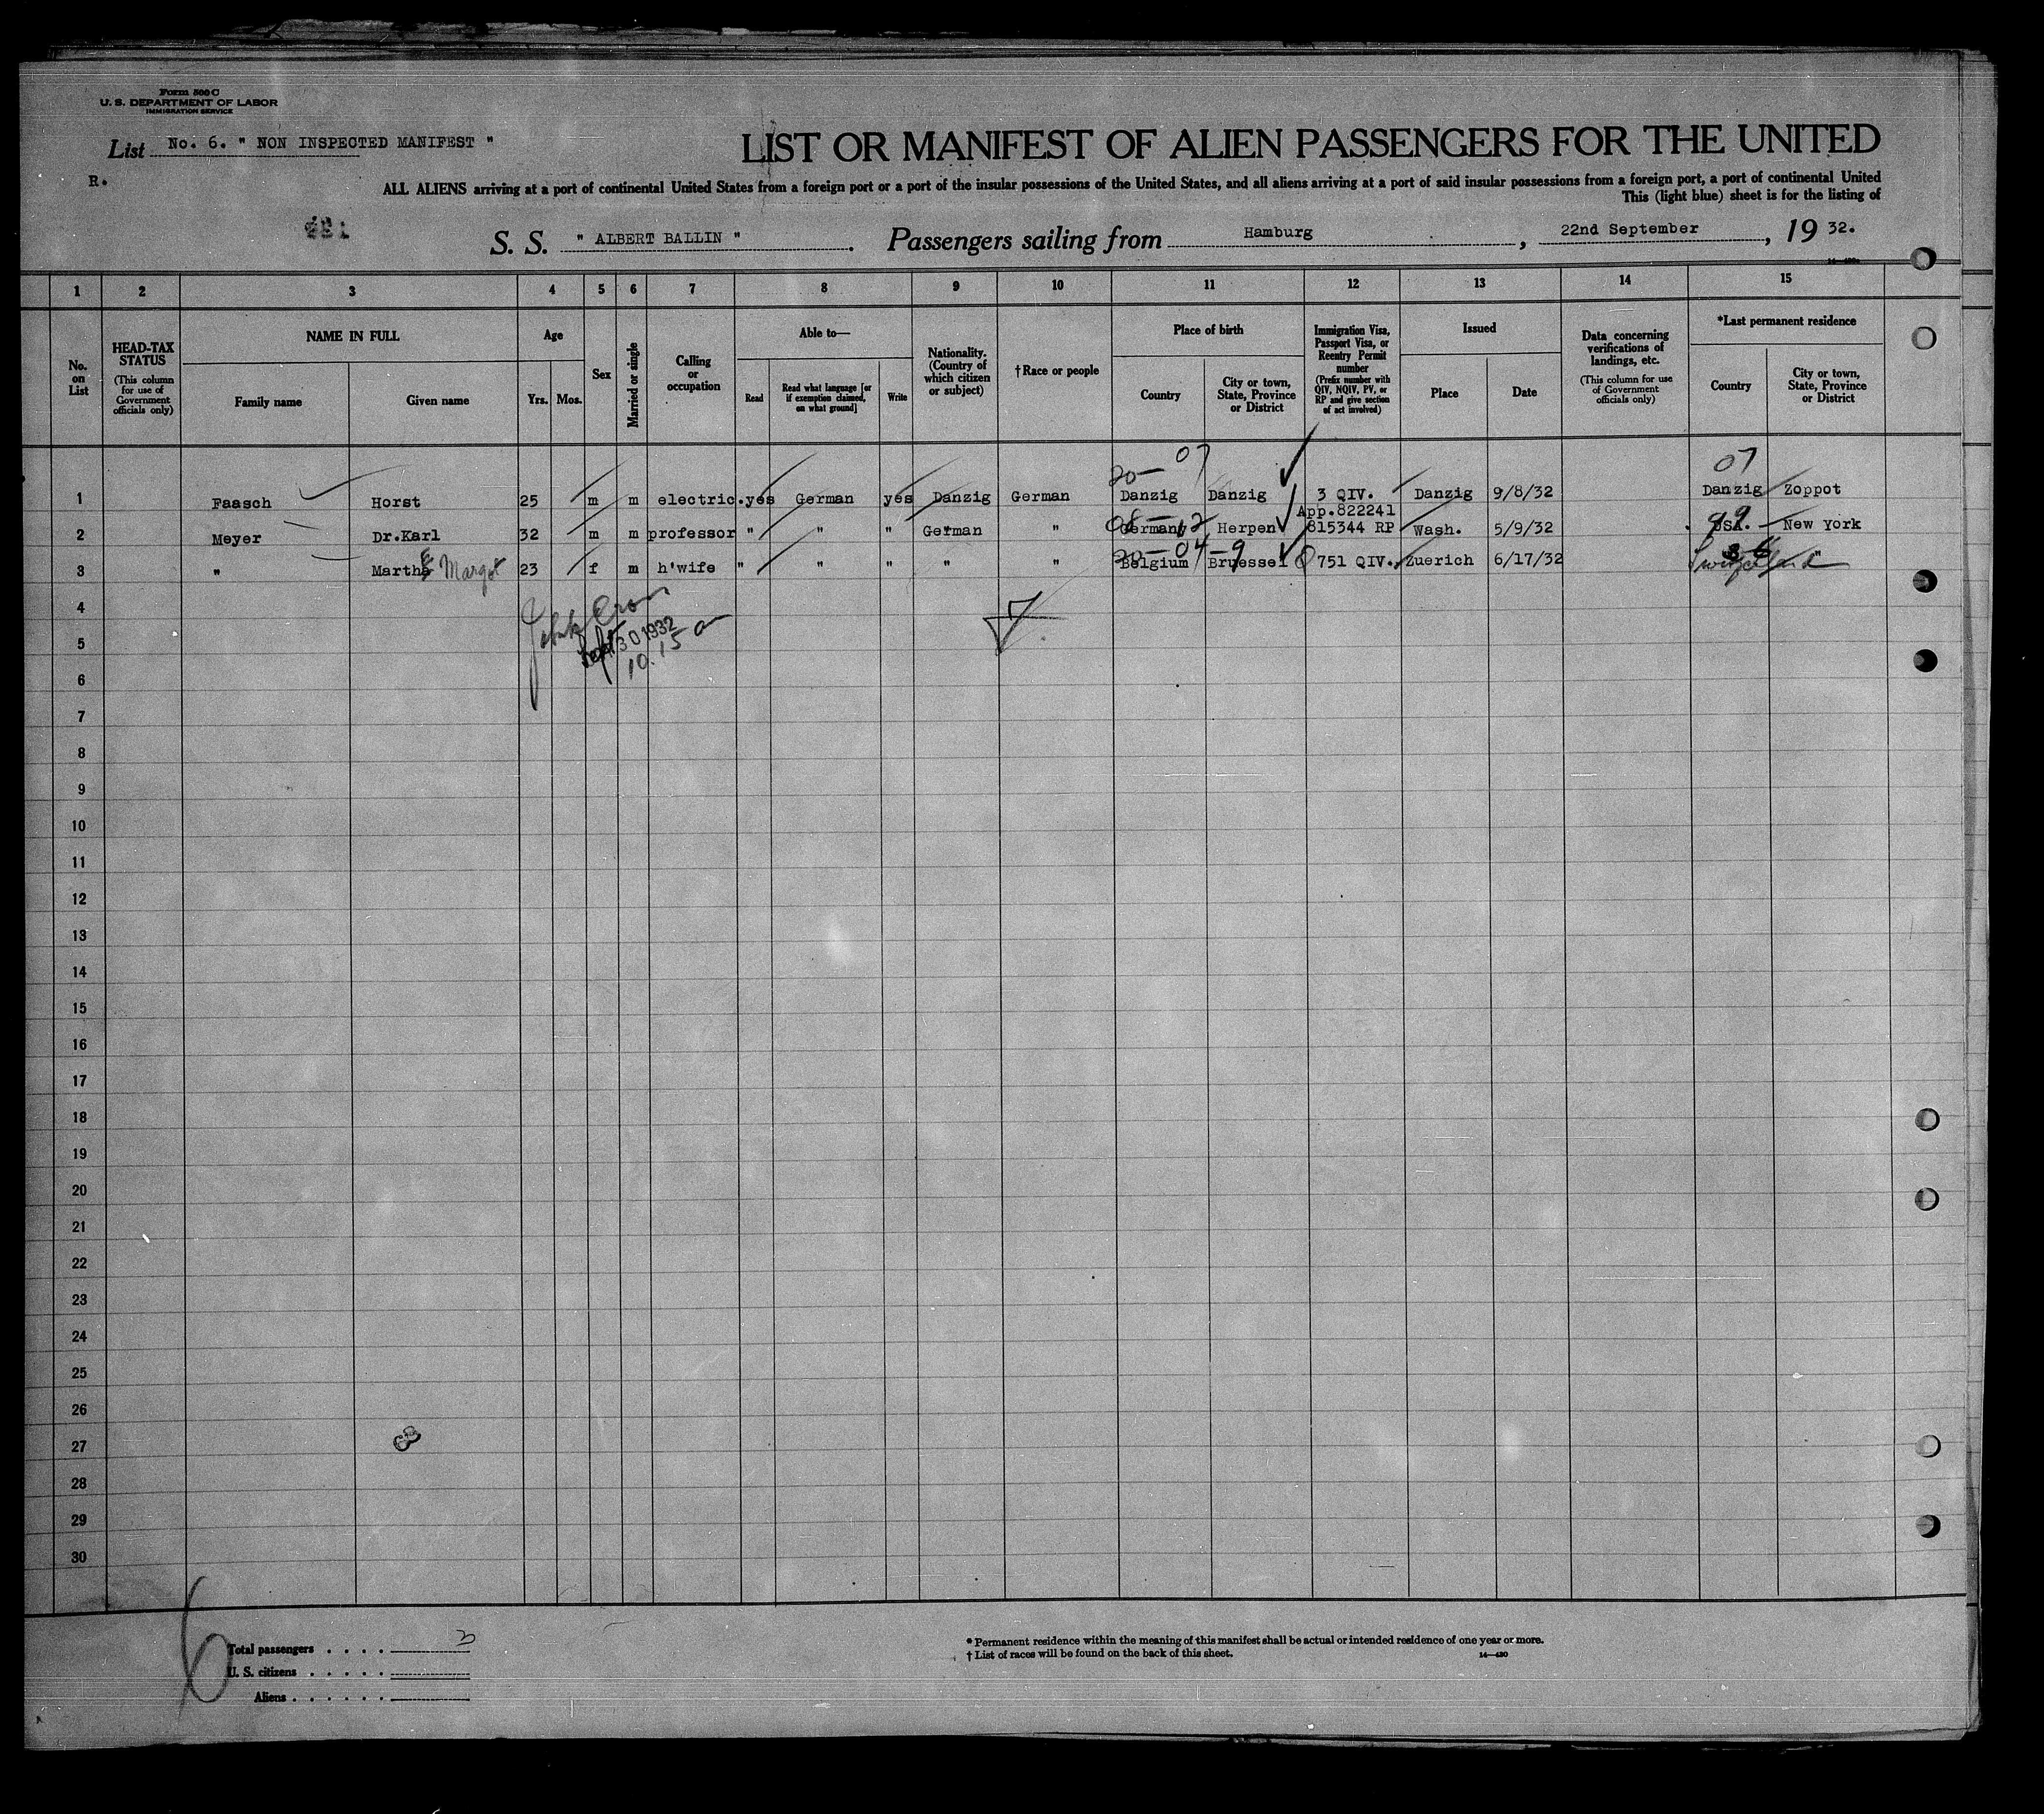 Form 500 C
U. S. DEPARTMENT OF LABOR
IMMIGRATION SERVICE
List No. 6. " NON INSPECTED MANIFEST "
R.
LIST OR MANIFEST OF ALIEN PASSENGERS FOR THE UNITED
ALL ALIENS arriving at a port of continental United States from a foreign port or a port of the insular possessions of the United States, and all aliens arriving at a port of said insular possessions from a foreign port, a port of continental United
This (light blue) sheet is for the listing of
S. S. " ALBERT BALLIN " . Passengers sailing from Hamburg , 22nd September , 19 32.
1 2 3 4 5 6 7 8 9 10 11 12 13 14 15
No. on List
HEAD-TAX STATUS
(This column for use of Government officials only)
NAME IN FULL
Family name Given name
Age
Yrs. Mos.
Sex
Married or single
Calling or occupation
Able to—
Read
Read what language [or if exemption claimed, on what ground]
Write
Nationality. (Country of which citizen or subject)
†Race or people
Place of birth
Country
City or town, State, Province or District
Immigration Visa, Passport Visa, or Reentry Permit number
(Prefix number with QIV, NQIV, PV, or RP and give section of act involved)
Issued
Place Date
Data concerning verifications of landings, etc.
(This column for use of Government officials only)
*Last permanent residence
Country
City or town, State, Province or District
20— 07 07
1 Faasch Horst 25 m m electric. yes German yes Danzig German Danzig Danzig 3 QIV. Danzig 9/8/32 Danzig Zoppot
App.822241
2 Meyer Dr.Karl 32 m m professor " " " German " Germany Herpen 815344 RP Wash. 5/9/32 USA. New York
20—04—9
3 " Martha Margot 23 f m h'wife " " " " " Belgium Bruessel 751 QIV. Zuerich 6/17/32 Switzerland "
4
5 30 1932
6 10.15 a
7
8
9
10
11
12
13
14
15
16
17
18
19
20
21
22
23
24
25
26
27
28
29
30
6
Total passengers . . . . 3
U. S. citizens . . . . .
Aliens . . . . . .
* Permanent residence within the meaning of this manifest shall be actual or intended residence of one year or more.
† List of races will be found on the back of this sheet.
14—430